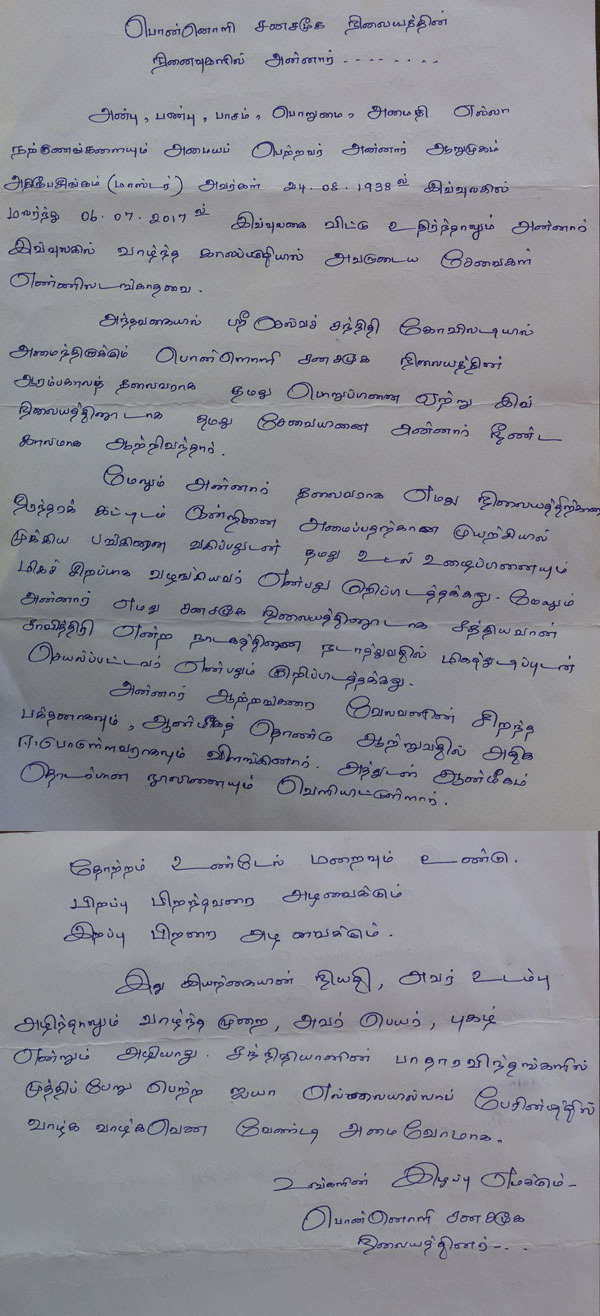 பொன்னொளி சனசமூக நிலையத்தின்
நினைவுகளில் அன்னார் - - - - - - - -
அன்பு, பண்பு, பாசம், பொறுமை, அமைதி எல்லா
நற்குணங்களையும் அமையப் பெற்றவர் அன்னார் ஆறுமுகம்
(மாஸ்டர்) அவர்கள் 24.08.1938ல் இவ்வுலகில்
மலர்ந்து 06.07.2017ல் இவ்வுலகை விட்டு உதிர்ந்தாலும் அன்னார்
இவ்வுலகில் வாழ்ந்த காலப்பகுதியில் அவருடைய சேவைகள்
எண்ணிலடங்காதவை.
அந்தவகையில் ஸ்ரீ செல்வச் சந்நிதி கோவிலடியில்
அமைந்திருக்கும் பொன்னொளி சனசமூக நிலையத்தின்
ஆரம்பகாலத் தலைவராக தமது பொறுப்பினை ஏற்று இவ்
நிலையத்தினூடாக தமது சேவையினை அன்னார் நீண்ட
காலமாக ஆற்றிவந்தார்.
மேலும் அன்னார் தலைவராக எமது நிலையத்திற்கான
நிரந்தரக் கட்டிடம் ஒன்றினை அமைப்பதற்கான முயற்சியில்
முக்கிய பங்கினை வகிப்பதுடன் தமது உடல் உழைப்பினையும்
மிகச் சிறப்பாக வழங்கியவர் என்பது குறிப்பிடத்தக்கது. மேலும்
அன்னார் எமது சனசமூக நிலையத்தினூடாக சத்தியவான்
சாவித்திரி என்ற நாடகத்தினை நடாத்துவதில் மிகத்துடிப்புடன்
செயல்ப்பட்டவர் என்பதும் குறிப்பிடத்தக்கது.
அன்னார் ஆற்றங்கரை வேலவனின் சிறந்த
பக்தனாகவும், ஆன்மீகத் தொண்டு ஆற்றுவதில் அதிக
ஈடுபாடுள்ளவராகவும் விளங்கினார். அத்துடன் ஆன்மீகம்
தொடர்பான நூலினையும் வெளியிட்டுள்ளார்.
தோற்றம் உண்டேல் மறைவும் உண்டு.
பிறப்பு பிறந்தவரை அடிவைக்கும்
இறப்பு பிறரை அடி வைக்கும்.
இது இயற்கையின் நியதி, அவர் உடம்பு
அழிந்தாலும் வாழ்ந்த முறை, அவர் பெயர், புகழ்
என்றும் அழியாது. சந்நிதியானின் பாதாரவிந்தங்களில்
முத்திப் பேறு பெற்ற ஐயா எல்லையில்லாப் பேரின்பத்தில்
வாழ்க வாழ்கவென வேண்டி அமைவோமாக.
உங்களின் இழப்பு எமக்கும் -
பொன்னொளி சனசமூக
நிலையத்தினர் - - .